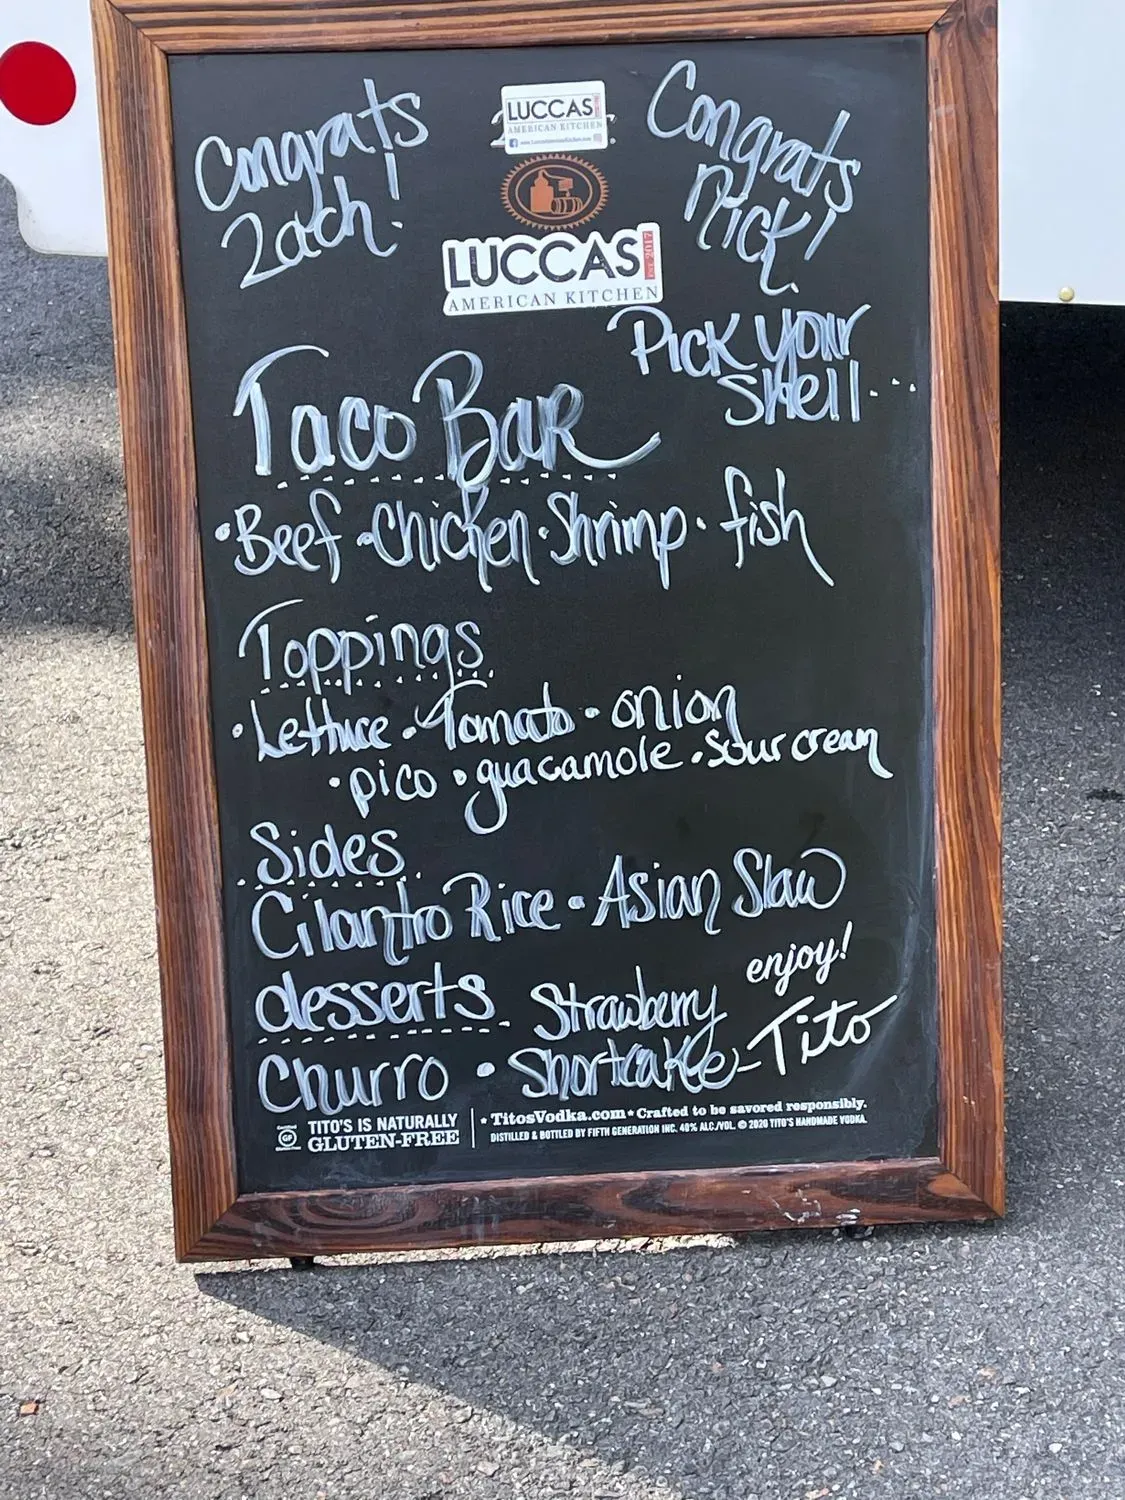 Congrats
Zach!
LUCCAS
AMERICAN KITCHEN
Congrats
Nick!
LUCCAS EST. 2017
AMERICAN KITCHEN
Pick your
shell...
Taco Bar
•Beef •Chicken •Shrimp • fish
Toppings
•Lettuce •Tomato • onion
•pico •guacamole •Sour cream
Sides
Cilantro Rice • Asian Slaw
desserts
Churro • Strawberry
Shortcake
enjoy!
-Tito
Certified
GF
Gluten-Free
TITO'S IS NATURALLY
GLUTEN-FREE
* TitosVodka.com * Crafted to be savored responsibly.
DISTILLED & BOTTLED BY FIFTH GENERATION INC. 40% ALC./VOL. © 2020 TITO'S HANDMADE VODKA.